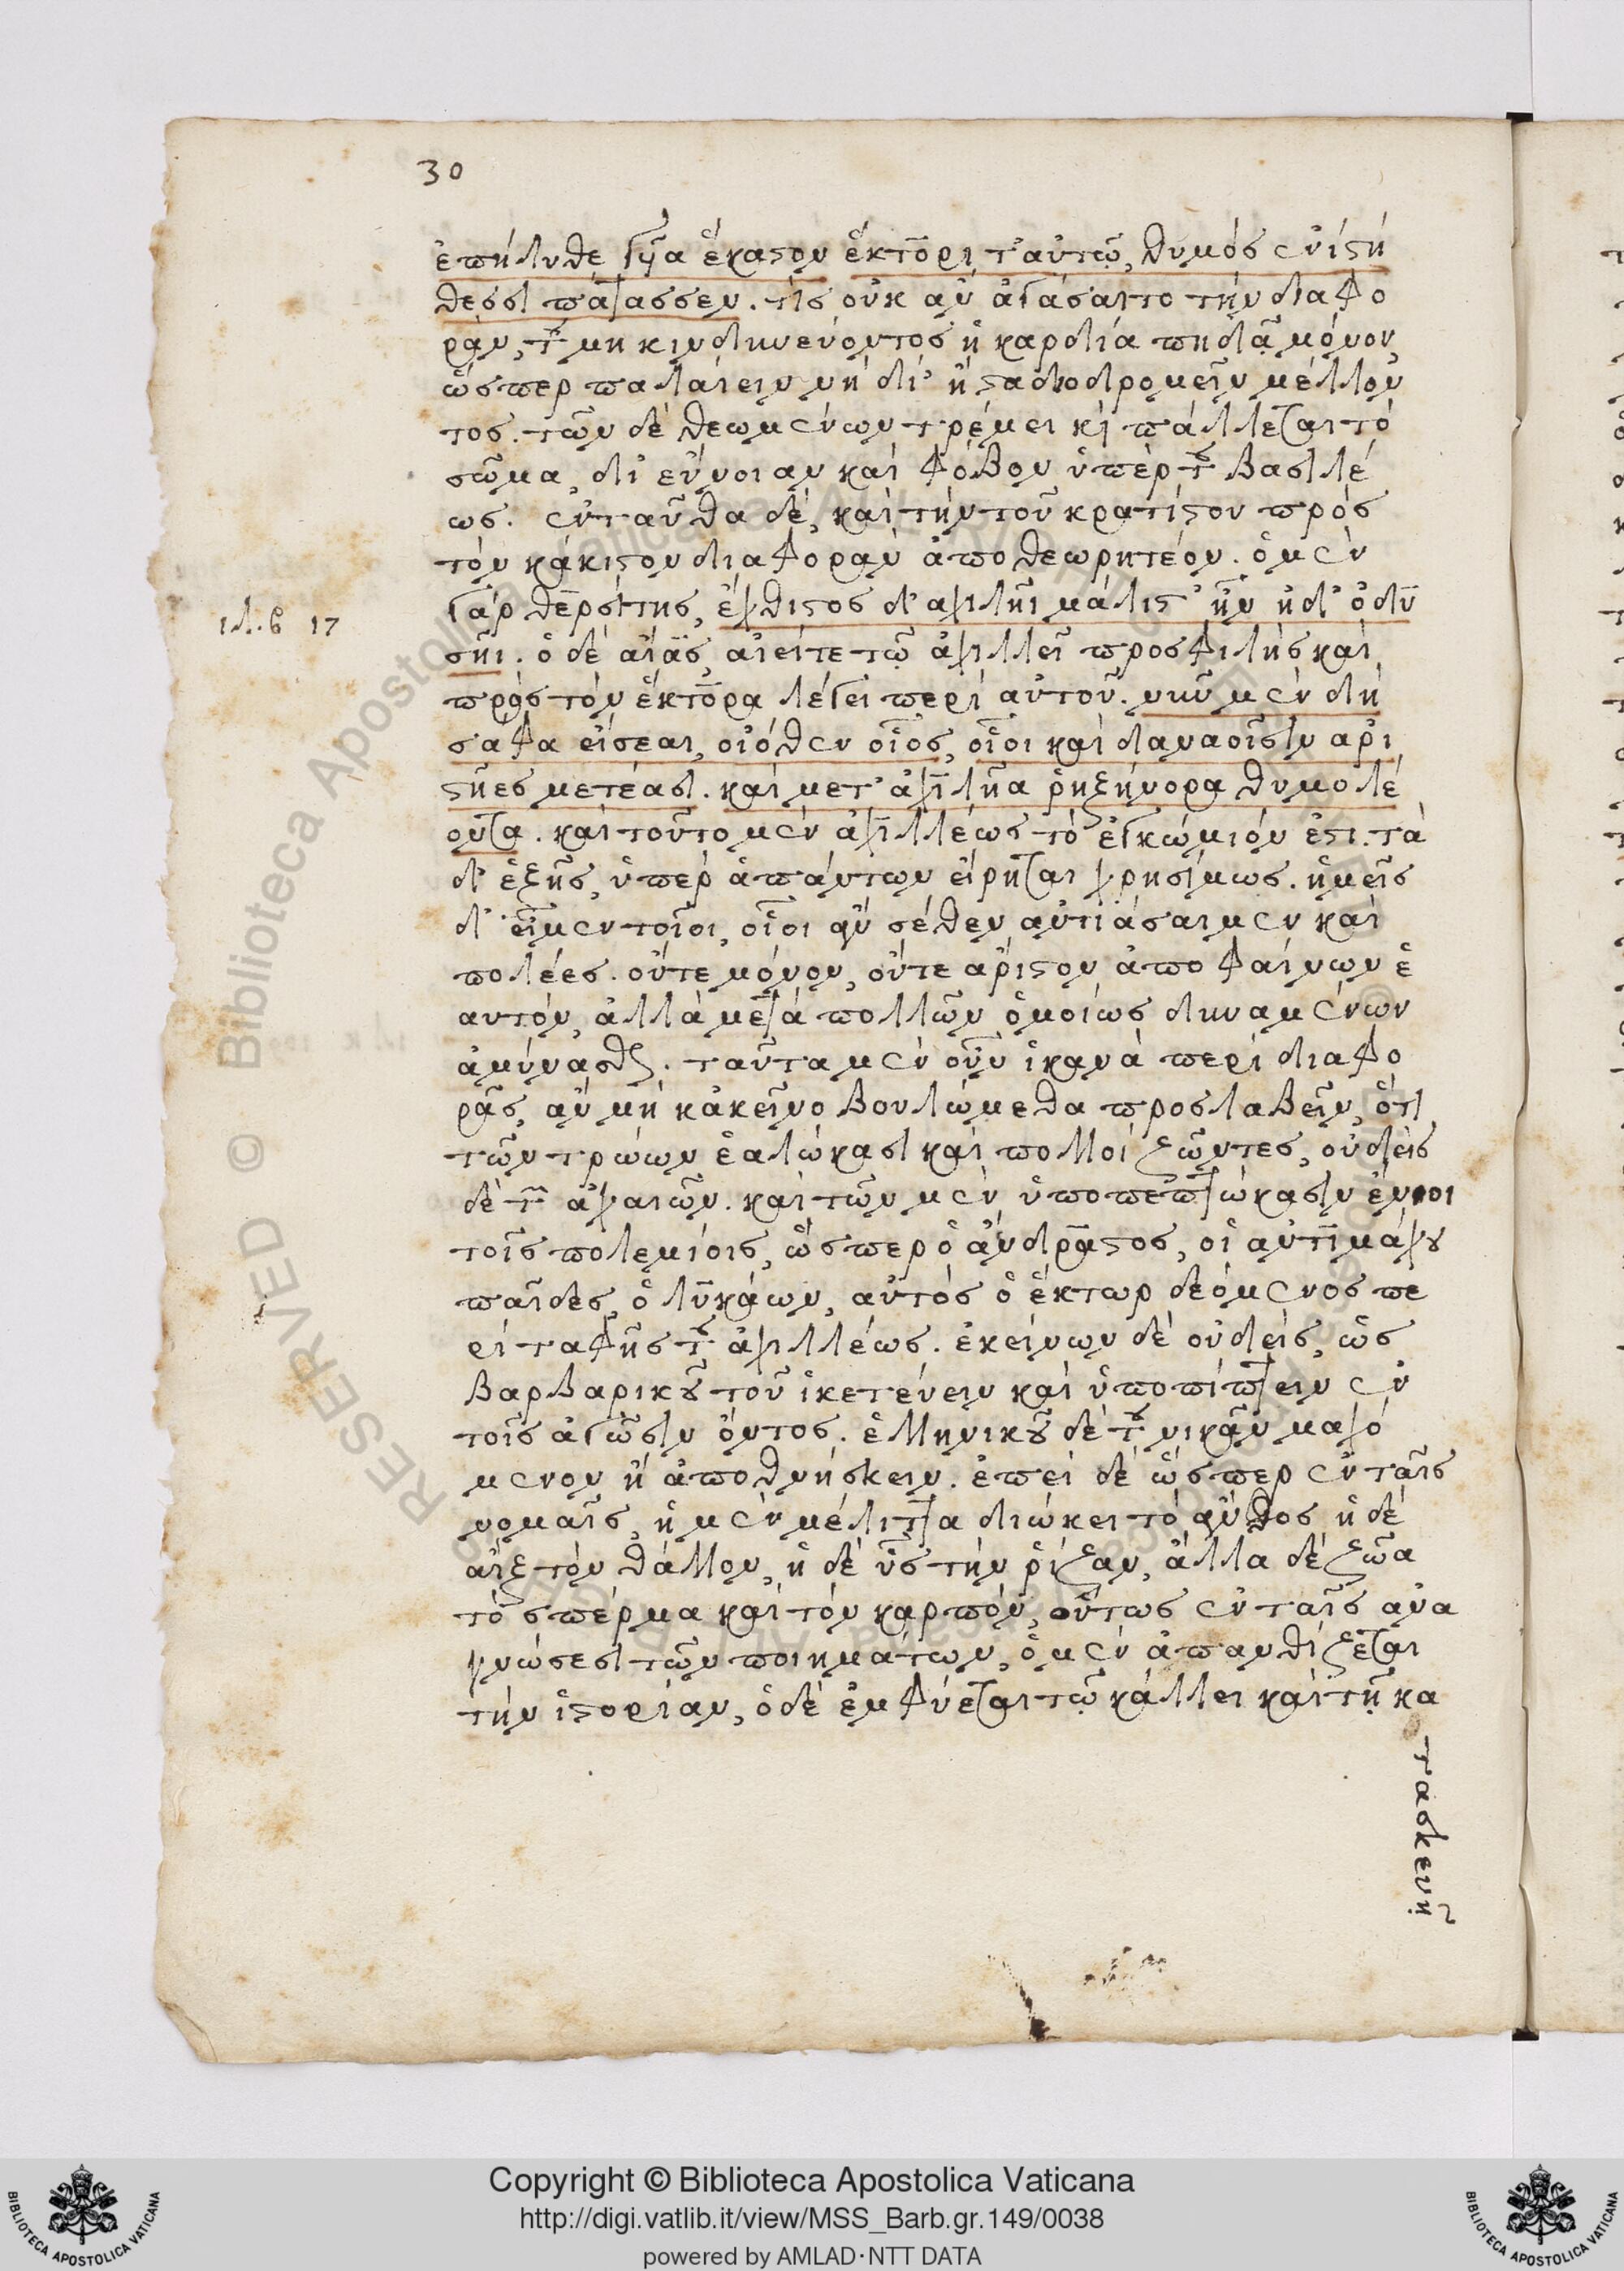 30
ἐπήλυθε γυῖα ἕκαστον ἕκτορι τ' αὐτῷ, θυμός ἐνὶ στή
θεσσι πάτασσεν. τίς οὐκ ἂν ἀγάσαιτο τὴν διαφο
ράν, τοῦ μὴ κινδυνεύοντος ἡ καρδία πηδᾷ μόνον,
ὥσπερ παλαίειν νὴ δι' ἢ σταδιοδρομεῖν μέλλον
τος. τῶν δὲ θεωμένων τρέμει κὶ πάλλεται τὸ
σῶμα, δι' εὔνοιαν καὶ φόβον ὑπὲρ τοῦ βασιλέ
ως. ἐνταῦθα δὲ, καὶ τὴν τοῦ κρατίστου πρὸς
τὸν κάκιστον διαφορὰν ἀποθεωρητέον. ὁ μὲν
ιλ. β 17
γὰρ θερσίτης, ἔχθιστος δ' αχιλῆι μάλιστ' ἦν ἠδ' ὀδυ
σῆι. ὁ δὲ αἴας, αἰεί τε τῷ ἀχιλλεῖ προσφιλὴς καὶ
πρὸς τὸν ἕκτορα λέγει περὶ αὐτοῦ. νῦν μὲν δὴ
σάφα εἴσεαι, οἰόθεν οἶος, οἷοι καὶ δαναοῖσιν αρι
στῆες μετέασι. καὶ μετ' ἀχιλῆα ῥηξήνορα θυμολέ
οντα. καὶ τοῦτο μὲν ἀχιλλέως τὸ ἐγκώμιόν ἐστι. τὰ
δ' ἑξῆς, ὑπὲρ ἁπάντων εἴρηται χρησίμως. ἡμεῖς
δ' εἶμεν τοῖοι, οἷοι ἂν σέθεν αντιάσαιμεν καὶ
πολέες. οὔτε μόνον, οὔτε άριστον ἀποφαίνων ἑ
αυτόν, ἀλλὰ μετὰ πολλῶν ὁμοίως δυναμένων
ἀμύνασθαι. ταῦτα μὲν οὖν ἱκανὰ περὶ διαφο
ρᾶς, αν μὴ κἀκεῖνο βουλώμεθα προσλαβεῖν, ὅτι
τῶν τρώων ἑαλώκασι καὶ πολλοὶ ζῶντες, οὐδεὶς
δὲ τῶν ἀχαιῶν. καὶ τῶν μὲν ὑποπεπτώκασιν ἔνιοι
τοῖς πολεμίοις, ὥσπερ ὁ ἄνδραστος, οἱ ἀντιμάχου
παῖδες, ὁ λυκάων, αὐτὸς ὁ ἕκτωρ δεόμενος πε
ρὶ ταφῆς τοῦ ἀχιλλέως. ἐκείνων δὲ οὐδεὶς, ὡς
βαρβαρικοῦ τοῦ ἱκετεύειν καὶ ὑποπίπτειν ἐν
τοῖς ἀγῶσιν ὄντος. ἑλληνικοῦ δὲ τοῦ νικᾶν μαχό
μενον ἢ ἀποθνήσκειν. ἐπεὶ δὲ ὥσπερ ἐν ταῖς
νομαῖς, ἡ μὲν μέλιττα διώκει τὸ ἄνθος ἡ δὲ
αἲξ τὸν θάλλον, ἡ δὲ ὗς τὴν ῥίζαν, ἄλλα δὲ ζῶα
τὸ σπέρμα καὶ τὸν καρπόν, οὕτως ἐν ταῖς ανα
γνώσεσι τῶν ποιημάτων, ὁ μὲν ἀπανθίζεται
τὴν ἱστορίαν, ὁ δὲ ἐμφύεται τῷ κάλλει καὶ τῇ κα
τασκευῇ
RESERVED © Biblioteca Apostolica Vaticana
Copyright © Biblioteca Apostolica Vaticana
http://digi.vatlib.it/view/MSS_Barb.gr.149/0038
powered by AMLAD·NTT DATA
BIBLIOTECA APOSTOLICA VATICANA
BIBLIOTECA APOSTOLICA VATICANA